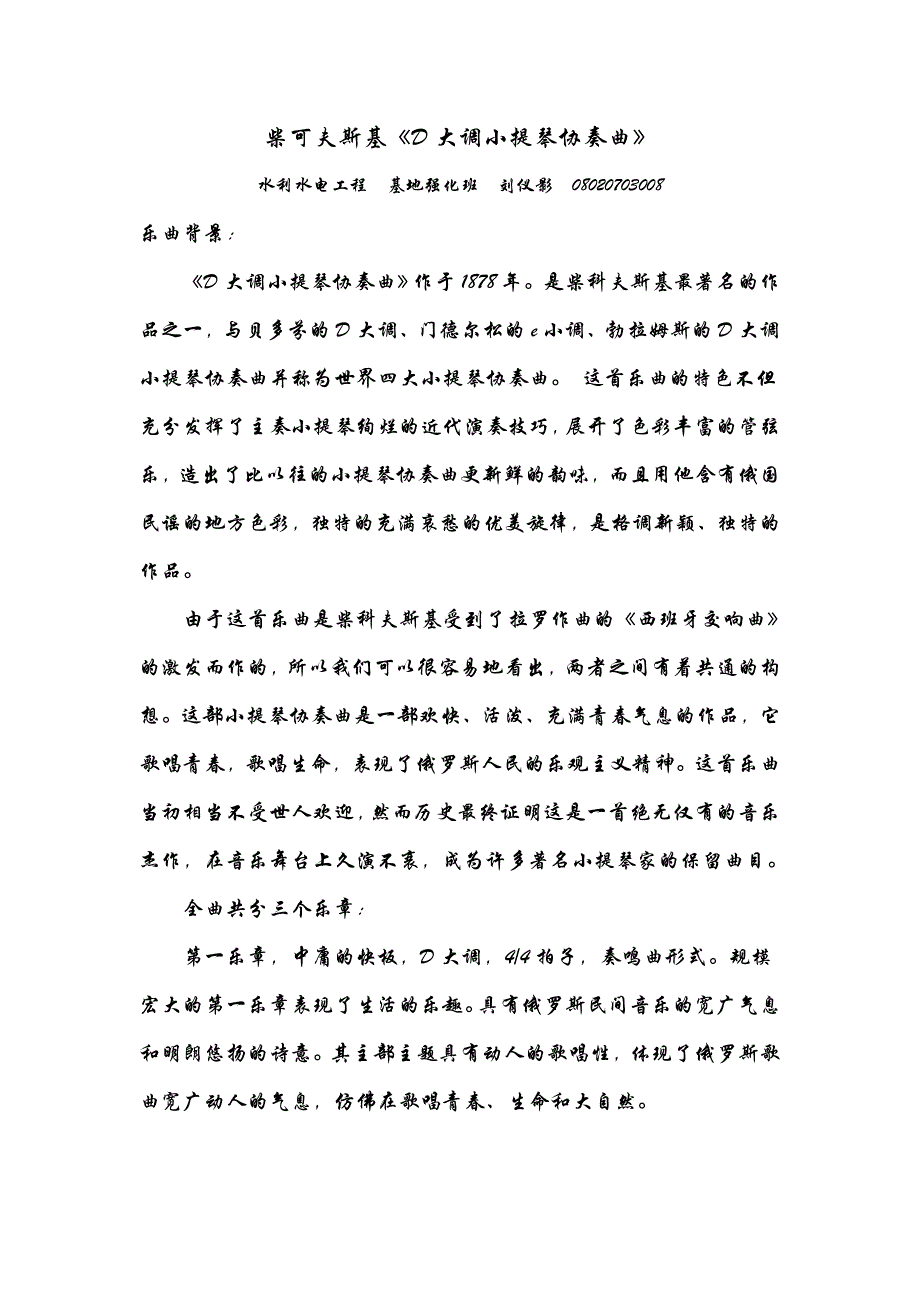 柴可夫斯基《D 大调小提琴协奏曲》
水利水电工程 基地强化班 刘仪影 08020703008
乐曲背景：
《D 大调小提琴协奏曲》作于 1878 年。是柴科夫斯基最著名的作
品之一，与贝多芬的 D 大调、门德尔松的 e 小调、勃拉姆斯的 D 大调
小提琴协奏曲并称为世界四大小提琴协奏曲。 这首乐曲的特色不但
充分发挥了主奏小提琴绚烂的近代演奏技巧，展开了色彩丰富的管弦
乐，造出了比以往的小提琴协奏曲更新鲜的韵味，而且用他含有俄国
民谣的地方色彩，独特的充满哀愁的优美旋律，是格调新颖、独特的
作品。
由于这首乐曲是柴科夫斯基受到了拉罗作曲的《西班牙交响曲》
的激发而作的，所以我们可以很容易地看出，两者之间有着共通的构
想。这部小提琴协奏曲是一部欢快、活泼、充满青春气息的作品，它
歌唱青春，歌唱生命，表现了俄罗斯人民的乐观主义精神。这首乐曲
当初相当不受世人欢迎，然而历史最终证明这是一首绝无仅有的音乐
杰作，在音乐舞台上久演不衰，成为许多著名小提琴家的保留曲目。
全曲共分三个乐章：
第一乐章，中庸的快板，D 大调，4/4 拍子，奏鸣曲形式。规模
宏大的第一乐章表现了生活的乐趣。具有俄罗斯民间音乐的宽广气息
和明朗悠扬的诗意。其主部主题具有动人的歌唱性，体现了俄罗斯歌
曲宽广动人的气息，仿佛在歌唱青春、生命和大自然。